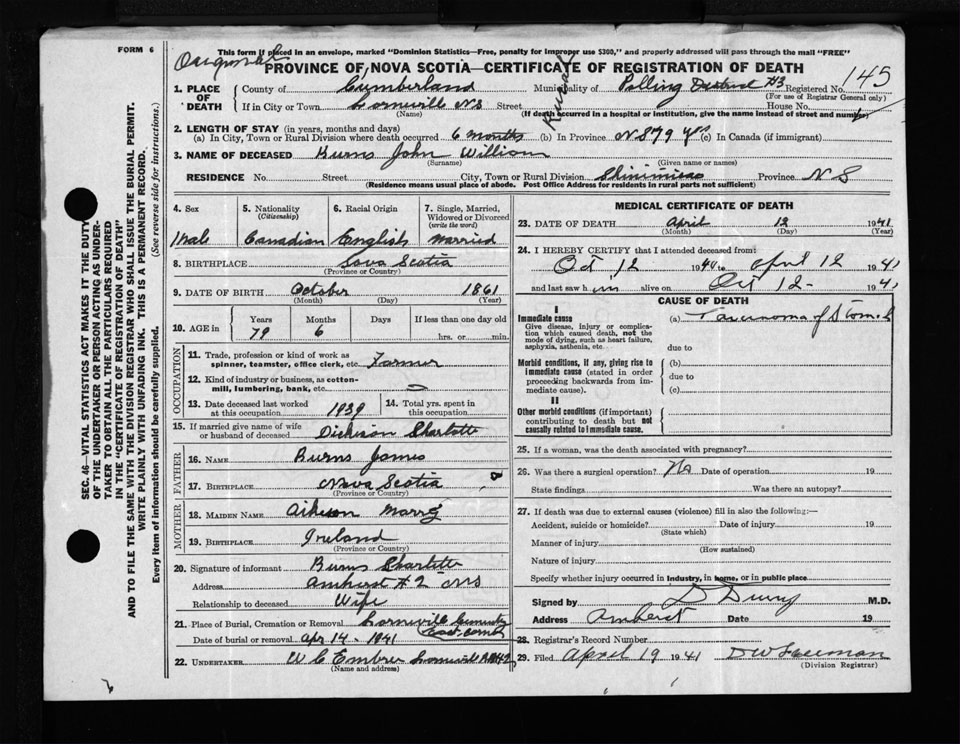 FORM 6
This form if placed in an envelope, marked "Dominion Statistics—Free, penalty for improper use $300," and properly addressed will pass through the mail "FREE"
Original
PROVINCE OF NOVA SCOTIA—CERTIFICATE OF REGISTRATION OF DEATH
145
1. PLACE OF DEATH
County of Cumberland Municipality of Polling District #3 Registered No.
Rural
(For use of Registrar General only)
If in City or Town Lornville NS Street House No.
(Name) (If death occurred in a hospital or institution, give the name instead of street and number)
2. LENGTH OF STAY (in years, months and days)
(a) In City, Town or Rural Division where death occurred 6 months (b) In Province NS 79 yrs (c) In Canada (if immigrant)
3. NAME OF DECEASED Burns John William
(Surname) (Given name or names)
RESIDENCE No. Street City, Town or Rural Division Shinimicas Province NS
(Residence means usual place of abode. Post Office Address for residents in rural parts not sufficient)
4. Sex Male
5. Nationality (Citizenship) Canadian
6. Racial Origin English
7. Single, Married, Widowed or Divorced (write the word) Married
8. BIRTHPLACE Nova Scotia
(Province or Country)
9. DATE OF BIRTH October 1861
(Month) (Day) (Year)
10. AGE in Years Months Days If less than one day old
79 6 hrs. or min.
OCCUPATION
11. Trade, profession or kind of work as spinner, teamster, office clerk, etc. Farmer
12. Kind of industry or business, as cotton-mill, lumbering, bank, etc.
13. Date deceased last worked at this occupation 1939
14. Total yrs. spent in this occupation
15. If married give name of wife or husband of deceased Dickison Charlotte
FATHER
16. NAME Burns James
17. BIRTHPLACE Nova Scotia
(Province or Country)
MOTHER
18. MAIDEN NAME
19. BIRTHPLACE Ireland
(Province or Country)
20. Signature of informant Burns Charlotte
Address Amherst #2 NS
Relationship to deceased Wife
21. Place of Burial, Cremation or Removal Lornville Cemetery
Date of burial or removal Apr 14 - 1941
22. UNDERTAKER W C Embree Lornville
MEDICAL CERTIFICATE OF DEATH
23. DATE OF DEATH April 12 1941
(Month) (Day) (Year)
24. I HEREBY CERTIFY that I attended deceased from:
Oct 12 1940 to April 12 1941
and last saw him alive on Oct 12 - 1941
CAUSE OF DEATH
I
Immediate cause
Give disease, injury or complication which caused death, not the mode of dying, such as heart failure, asphyxia, asthenia, etc.
(a) Carcinoma of Stomach
due to
Morbid conditions, if any, giving rise to immediate cause (stated in order proceeding backwards from immediate cause).
(b)
due to
(c)
II
Other morbid conditions (if important) contributing to death but not causally related to immediate cause.
25. If a woman, was the death associated with pregnancy?
26. Was there a surgical operation? No Date of operation 19
State findings Was there an autopsy?
27. If death was due to external causes (violence) fill in also the following:—
Accident, suicide or homicide? Date of injury 19
(State which)
Manner of injury
(How sustained)
Nature of injury
Specify whether injury occurred in industry, in home, or in public place
Signed by M.D.
Address Amherst Date 19
28. Registrar's Record Number
29. Filed April 19 1941 D W Freeman
(Division Registrar)
SEC. 46—VITAL STATISTICS ACT MAKES IT THE DUTY
OF THE UNDERTAKER OR PERSON ACTING AS UNDER-
TAKER TO OBTAIN ALL THE PARTICULARS REQUIRED
IN THE "CERTIFICATE OF REGISTRATION OF DEATH"
AND TO FILE THE SAME WITH THE DIVISION REGISTRAR WHO SHALL ISSUE THE BURIAL PERMIT.
WRITE PLAINLY WITH UNFADING INK. THIS IS A PERMANENT RECORD.
Every item of information should be carefully supplied. (See reverse side for instructions.)